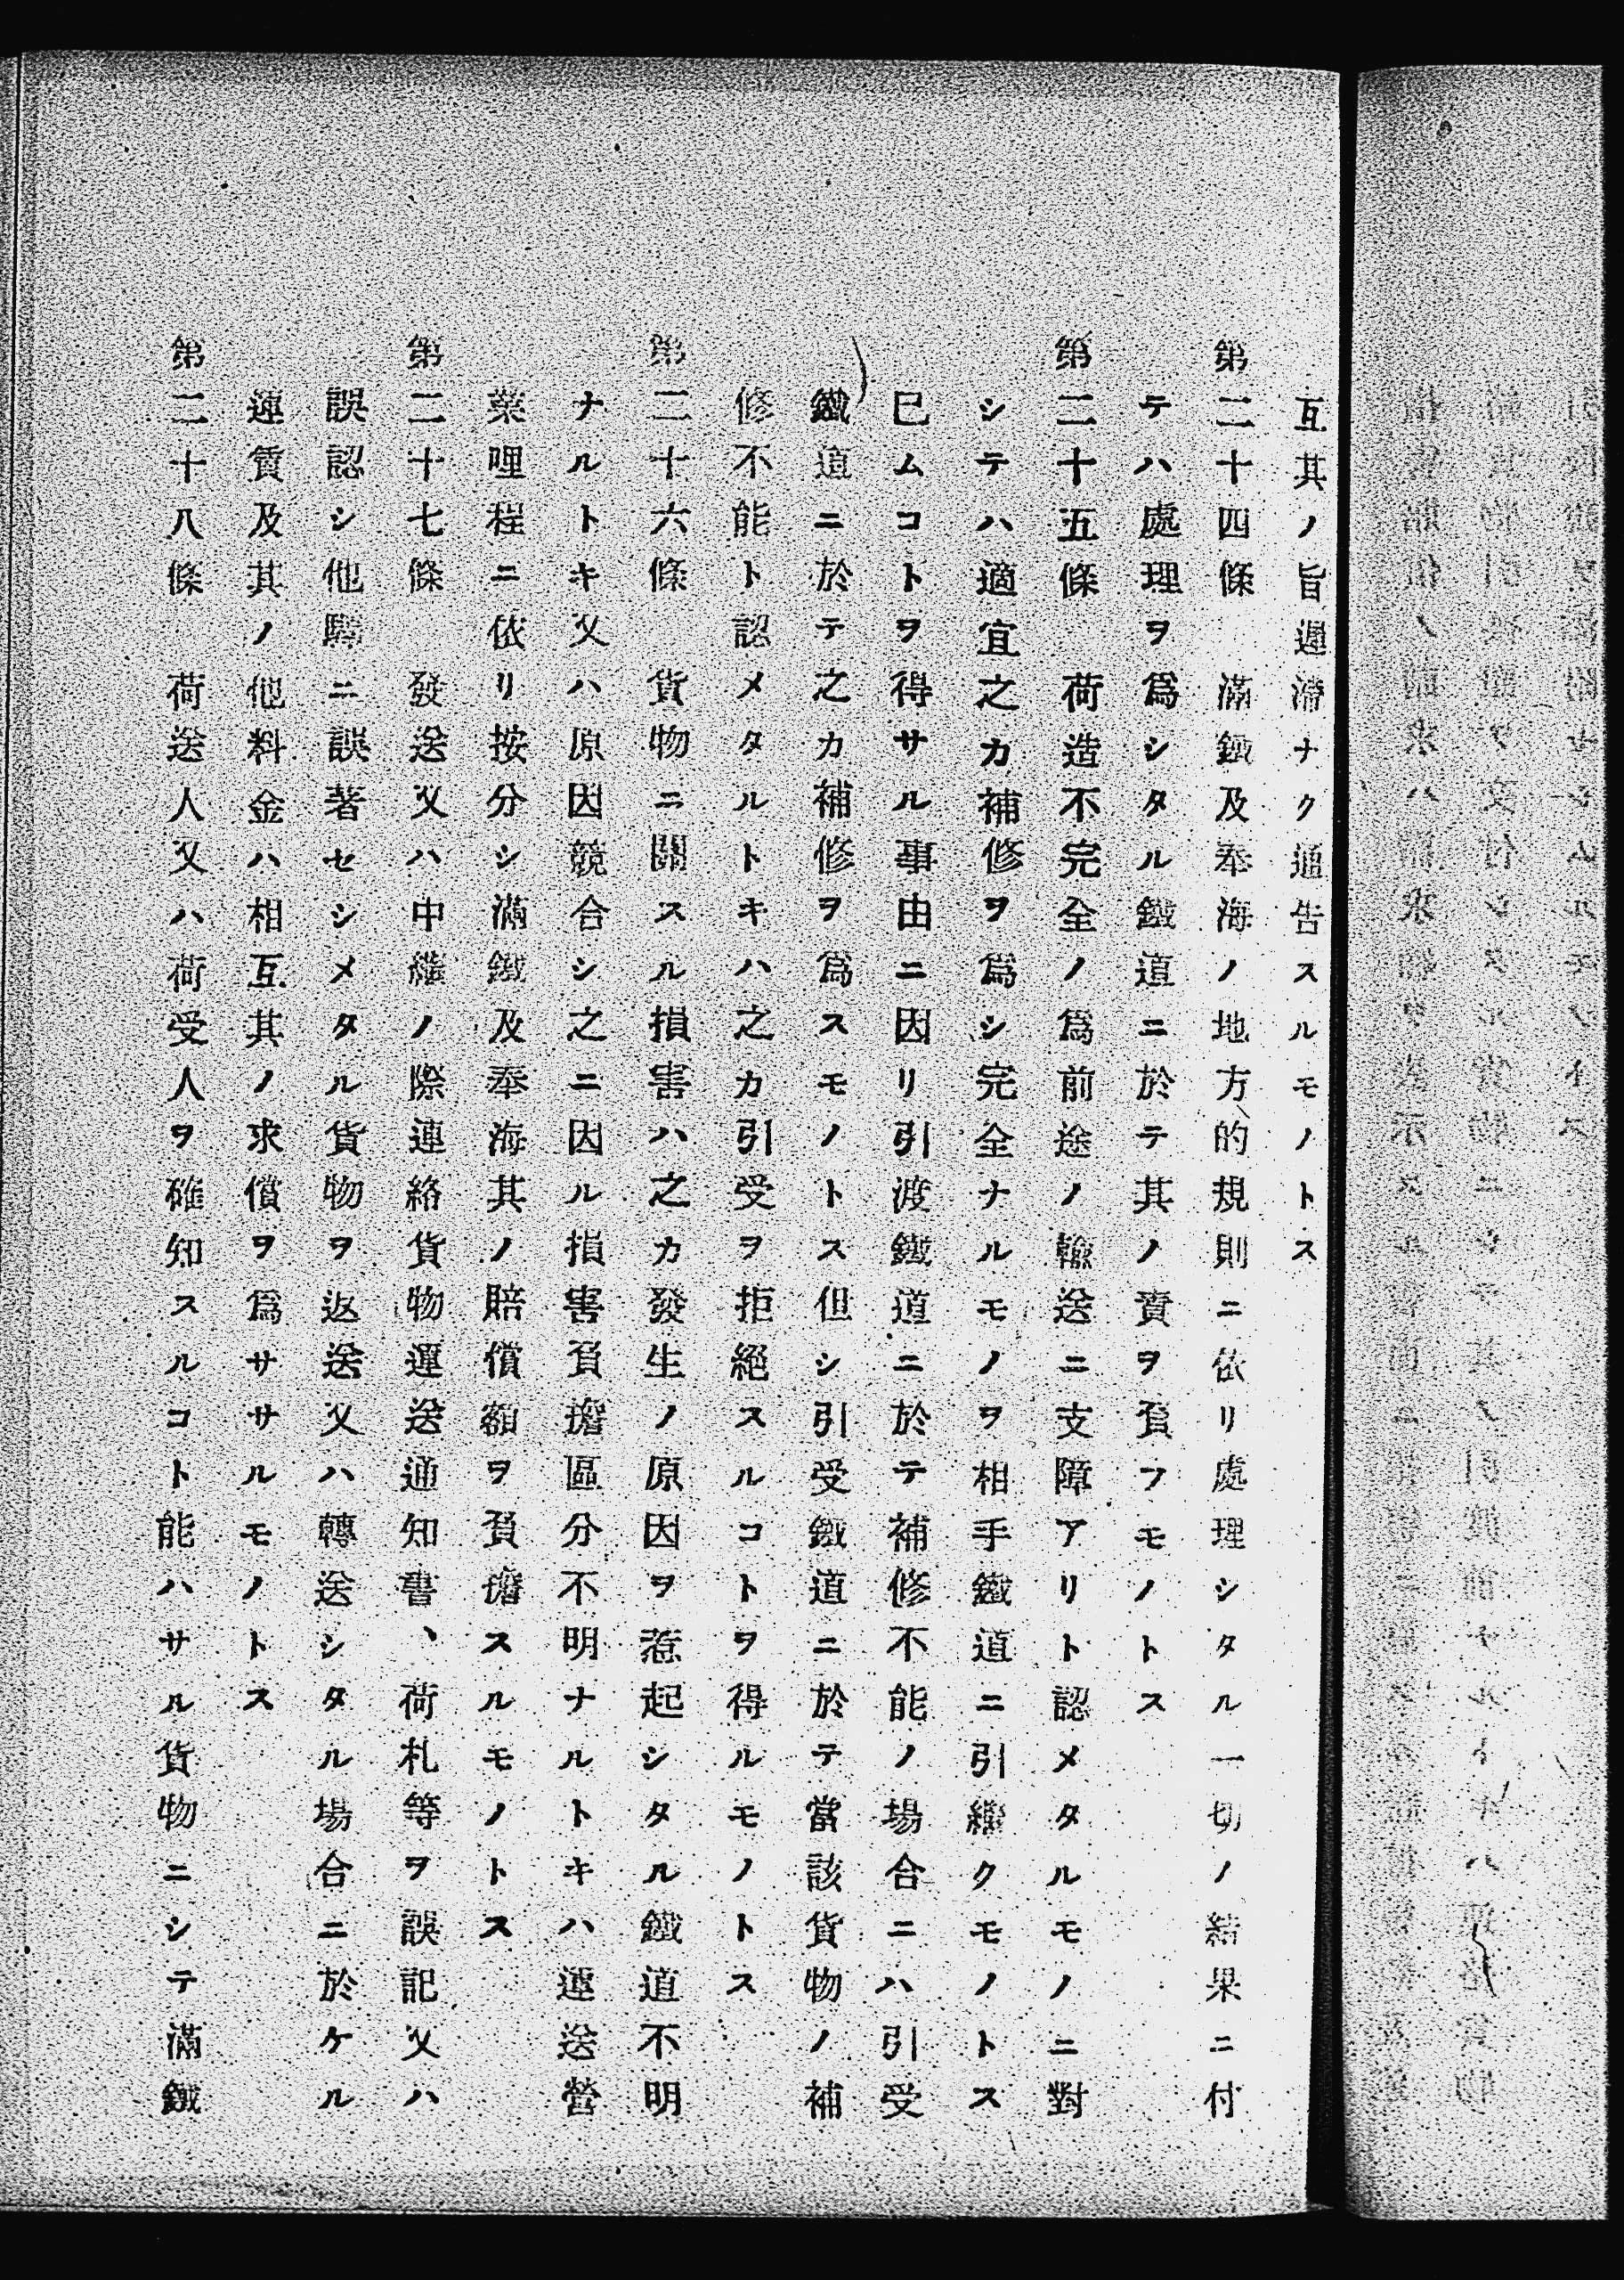 互其ノ旨遲滯ナク通告スルモノトス
第二十四條　滿鐵及奉海ノ地方的規則ニ依リ處理シタル一切ノ結果ニ付
テハ處理ヲ爲シタル鐵道ニ於テ其ノ責ヲ負フモノトス
第二十五條　荷造不完全ノ爲前途ノ輸送ニ支障アリト認メタルモノニ對
シテハ適宜之カ補修ヲ爲シ完全ナルモノヲ相手鐵道ニ引繼クモノトス
已ムコトヲ得サル事由ニ因リ引渡鐵道ニ於テ補修不能ノ場合ニハ引受
鐵道ニ於テ之カ補修ヲ爲スモノトス但シ引受鐵道ニ於テ當該貨物ノ補
修不能ト認メタルトキハ之カ引受ヲ拒絕スルコトヲ得ルモノトス
第二十六條　貨物ニ關スル損害ハ之カ發生ノ原因ヲ惹起シタル鐵道不明
ナルトキ又ハ原因競合シ之ニ因ル損害負擔區分不明ナルトキハ運送營
業哩程ニ依リ按分シ滿鐵及奉海其ノ賠償額ヲ負擔スルモノトス
第二十七條　發送又ハ中繼ノ際連絡貨物運送通知書、荷札等ヲ誤記又ハ
誤認シ他驛ニ誤著セシメタル貨物ヲ返送又ハ轉送シタル場合ニ於ケル
運賃及其ノ他料金ハ相互其ノ求償ヲ爲ササルモノトス
第二十八條　荷送人又ハ荷受人ヲ確知スルコト能ハサル貨物ニシテ滿鐵